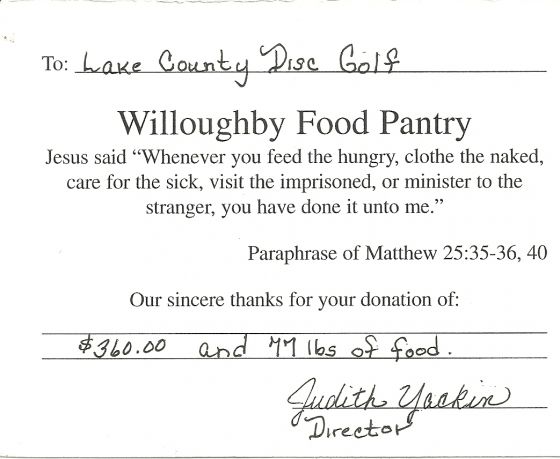 To: Lake County Disc Golf
Willoughby Food Pantry
Jesus said “Whenever you feed the hungry, clothe the naked,
care for the sick, visit the imprisoned, or minister to the
stranger, you have done it unto me.”
Paraphrase of Matthew 25:35-36, 40
Our sincere thanks for your donation of:
$360.00 and 77 lbs of food.
Judith Yackin
Director